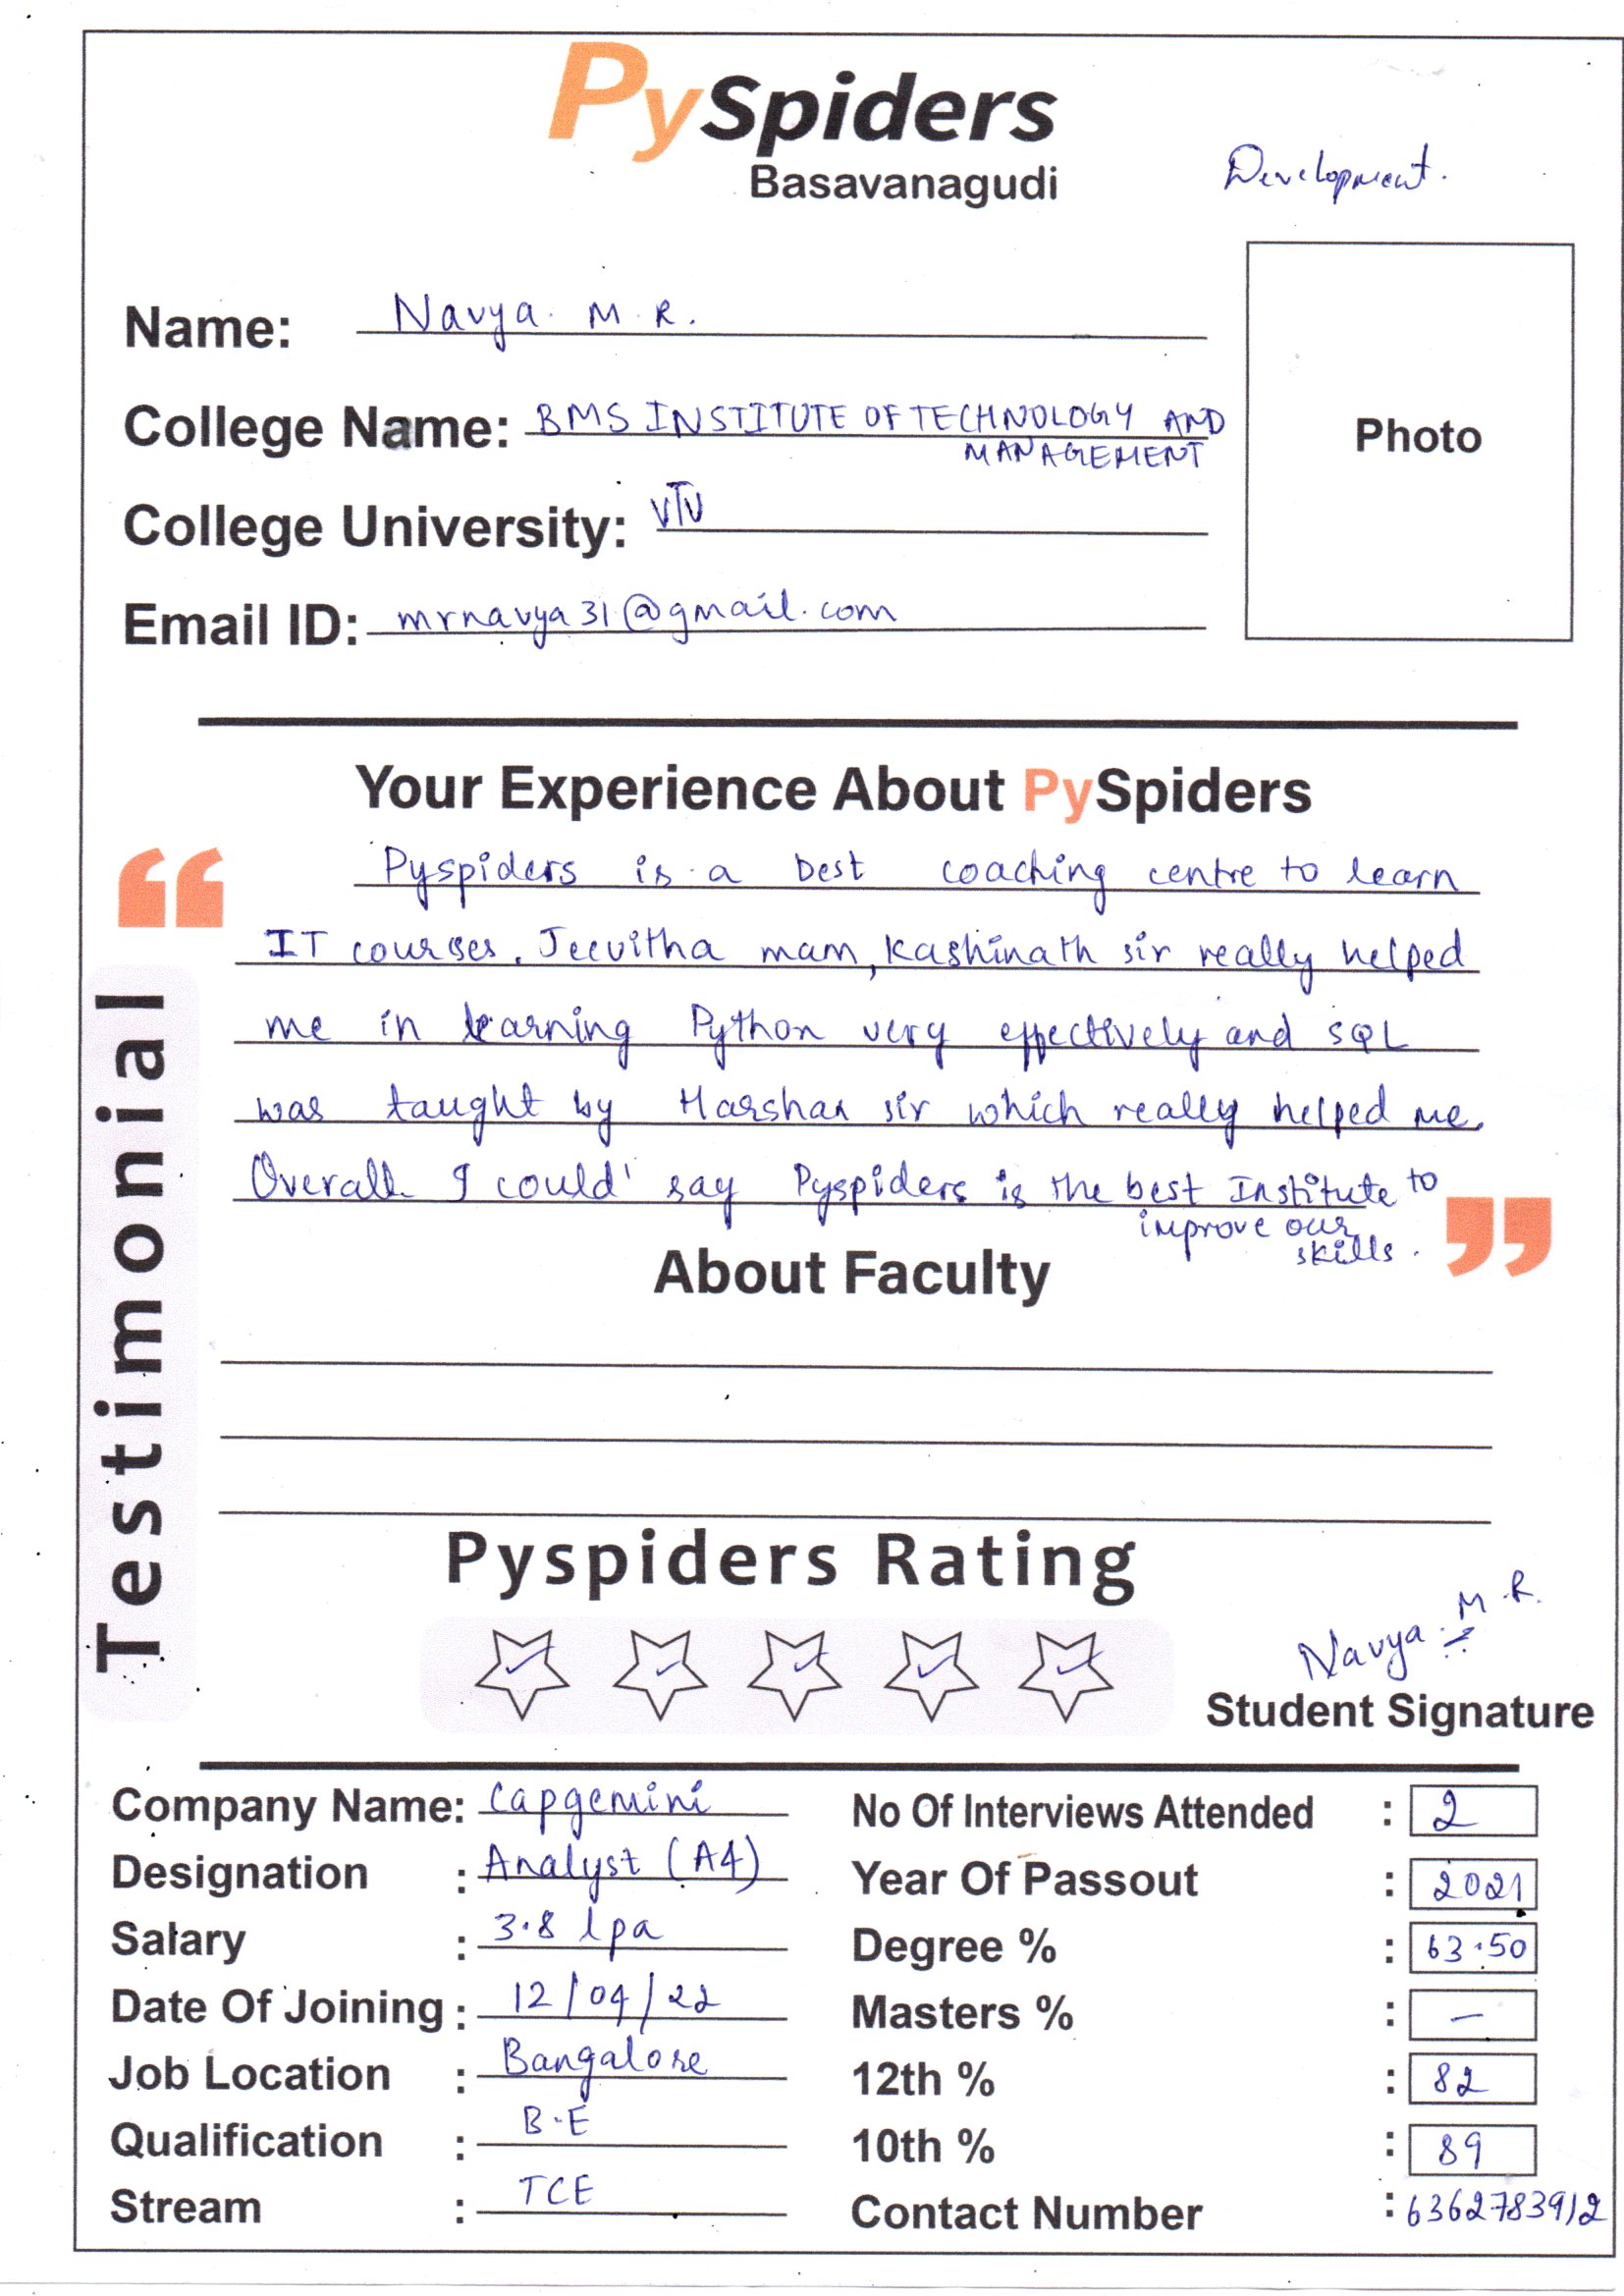 PySpiders
Basavanagudi
Development.
Name: Navya. M. R.
College Name: BMS INSTITUTE OF TECHNOLOGY AND
MANAGEMENT
Photo
College University: VTU
Email ID: mrnavya31@gmail.com
Your Experience About PySpiders
Pyspiders is a best coaching centre to learn
IT courses. Jeevitha mam, Kashinath sir really helped
me in learning Python very effectively and SQL
was taught by Harshan sir which really helped me.
Overall I could say Pyspiders is the best Institute to
improve our
skills.
Testimonial
About Faculty
Pyspiders Rating
Navya M.R.
Student Signature
Company Name: Capgemini
Designation : Analyst (A4)
Salary : 3.8 lpa
Date Of Joining : 12/04/22
Job Location : Bangalore
Qualification : B.E
Stream : TCE
No Of Interviews Attended : 2
Year Of Passout : 2021
Degree % : 63.50
Masters % : —
12th % : 82
10th % : 89
Contact Number : 6362783912